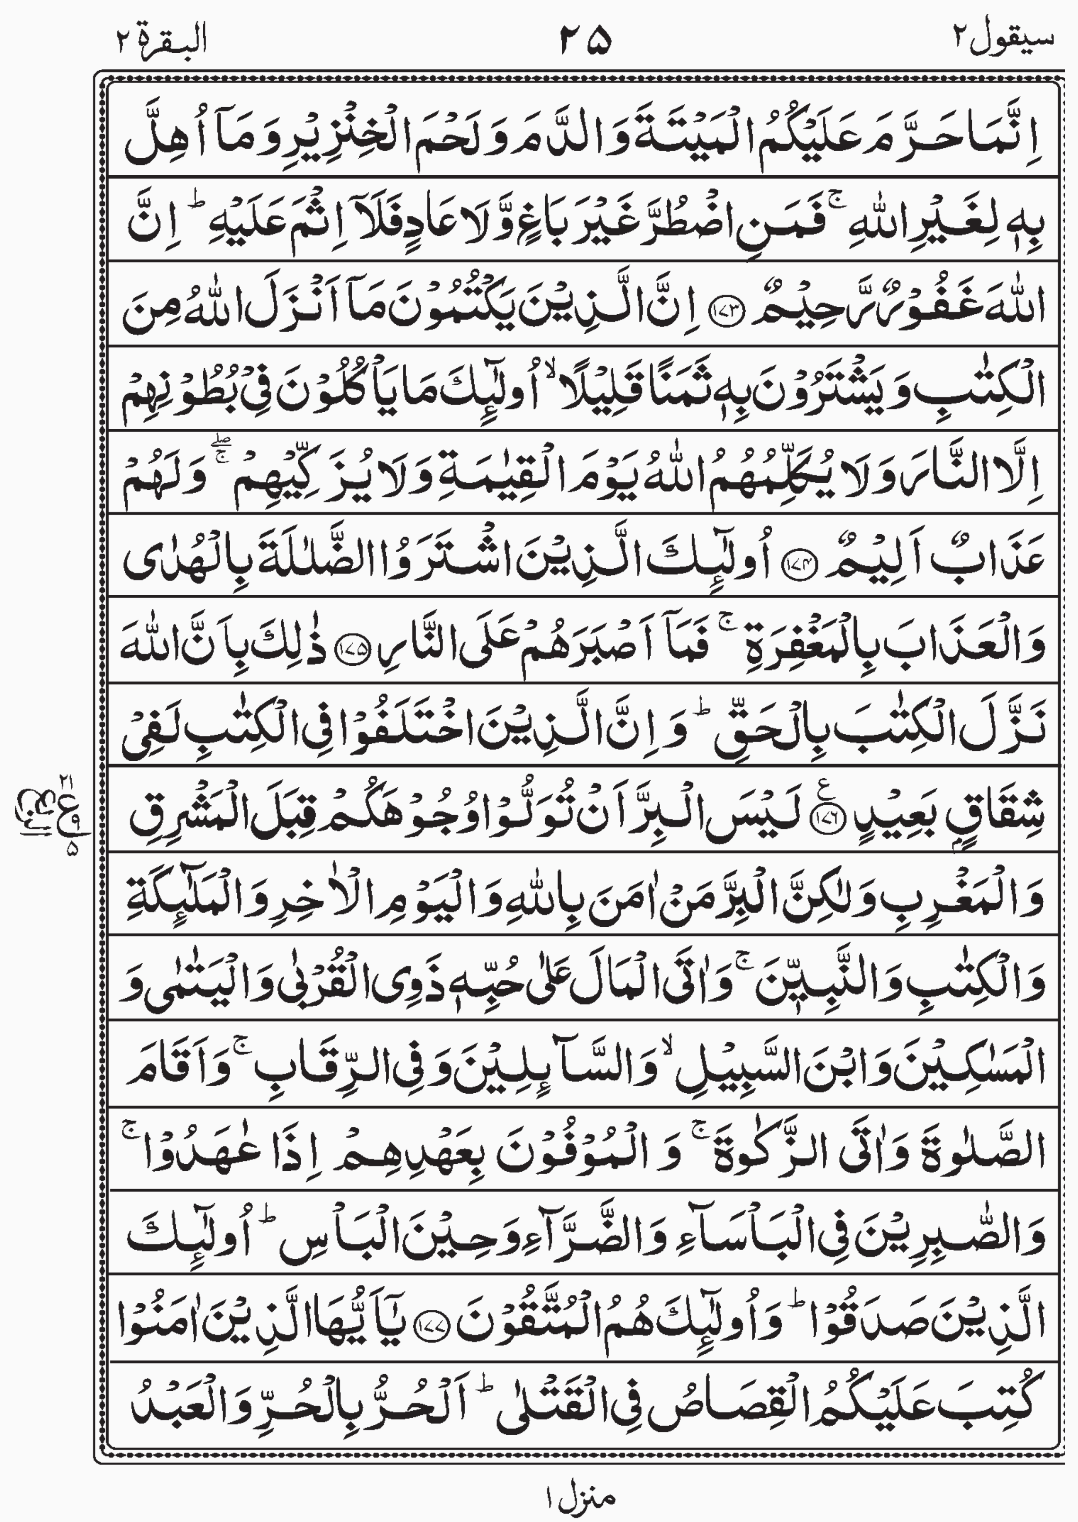 سيقول ٢
٢٥
البقرة ٢
اِنَّمَا حَرَّمَ عَلَيۡكُمُ الۡمَيۡتَةَ وَالدَّمَ وَلَحۡمَ الۡخِنۡزِيۡرِ وَمَآ اُهِلَّ
بِهٖ لِغَيۡرِ اللّٰهِ ۚ فَمَنِ اضۡطُرَّ غَيۡرَ بَاغٍ وَّلَا عَادٍ فَلَآ اِثۡمَ عَلَيۡهِ ؕ اِنَّ
اللّٰهَ غَفُوۡرٌ رَّحِيۡمٌ ﴿۱۷۳﴾ اِنَّ الَّذِيۡنَ يَكۡتُمُوۡنَ مَآ اَنۡزَلَ اللّٰهُ مِنَ
الۡكِتٰبِ وَيَشۡتَرُوۡنَ بِهٖ ثَمَنًا قَلِيۡلًا ۙ اُولٰٓئِكَ مَا يَاۡكُلُوۡنَ فِىۡ بُطُوۡنِهِمۡ
اِلَّا النَّارَ وَلَا يُكَلِّمُهُمُ اللّٰهُ يَوۡمَ الۡقِيٰمَةِ وَلَا يُزَكِّيۡهِمۡ ۖۚ وَلَهُمۡ
عَذَابٌ اَلِيۡمٌ ﴿۱۷۴﴾ اُولٰٓئِكَ الَّذِيۡنَ اشۡتَرَوُا الضَّلٰلَةَ بِالۡهُدٰى
وَالۡعَذَابَ بِالۡمَغۡفِرَةِ ۚ فَمَآ اَصۡبَرَهُمۡ عَلَى النَّارِ ﴿۱۷۵﴾ ذٰلِكَ بِاَنَّ اللّٰهَ
نَزَّلَ الۡكِتٰبَ بِالۡحَقِّ ؕ وَاِنَّ الَّذِيۡنَ اخۡتَلَفُوۡا فِى الۡكِتٰبِ لَفِىۡ
شِقَاقٍۢ بَعِيۡدٍ ﴿۱۷۶﴾ ع لَيۡسَ الۡبِرَّ اَنۡ تُوَلُّوۡا وُجُوۡهَكُمۡ قِبَلَ الۡمَشۡرِقِ
٢١
ع
٩
٥
وَالۡمَغۡرِبِ وَلٰكِنَّ الۡبِرَّ مَنۡ اٰمَنَ بِاللّٰهِ وَالۡيَوۡمِ الۡاٰخِرِ وَالۡمَلٰٓئِكَةِ
وَالۡكِتٰبِ وَالنَّبِيّٖنَ ۚ وَاٰتَى الۡمَالَ عَلٰى حُبِّهٖ ذَوِى الۡقُرۡبٰى وَالۡيَتٰمٰى وَ
الۡمَسٰكِيۡنَ وَابۡنَ السَّبِيۡلِ ۙ وَالسَّآئِلِيۡنَ وَفِى الرِّقَابِ ۚ وَاَقَامَ
الصَّلٰوةَ وَاٰتَى الزَّكٰوةَ ۚ وَالۡمُوۡفُوۡنَ بِعَهۡدِهِمۡ اِذَا عٰهَدُوۡا ۚ
وَالصّٰبِرِيۡنَ فِى الۡبَاۡسَآءِ وَالضَّرَّآءِ وَحِيۡنَ الۡبَاۡسِ ؕ اُولٰٓئِكَ
الَّذِيۡنَ صَدَقُوۡا ؕ وَاُولٰٓئِكَ هُمُ الۡمُتَّقُوۡنَ ﴿۱۷۷﴾ يٰٓاَيُّهَا الَّذِيۡنَ اٰمَنُوۡا
كُتِبَ عَلَيۡكُمُ الۡقِصَاصُ فِى الۡقَتۡلٰى ؕ اَلۡحُرُّ بِالۡحُرِّ وَالۡعَبۡدُ
منزل ١